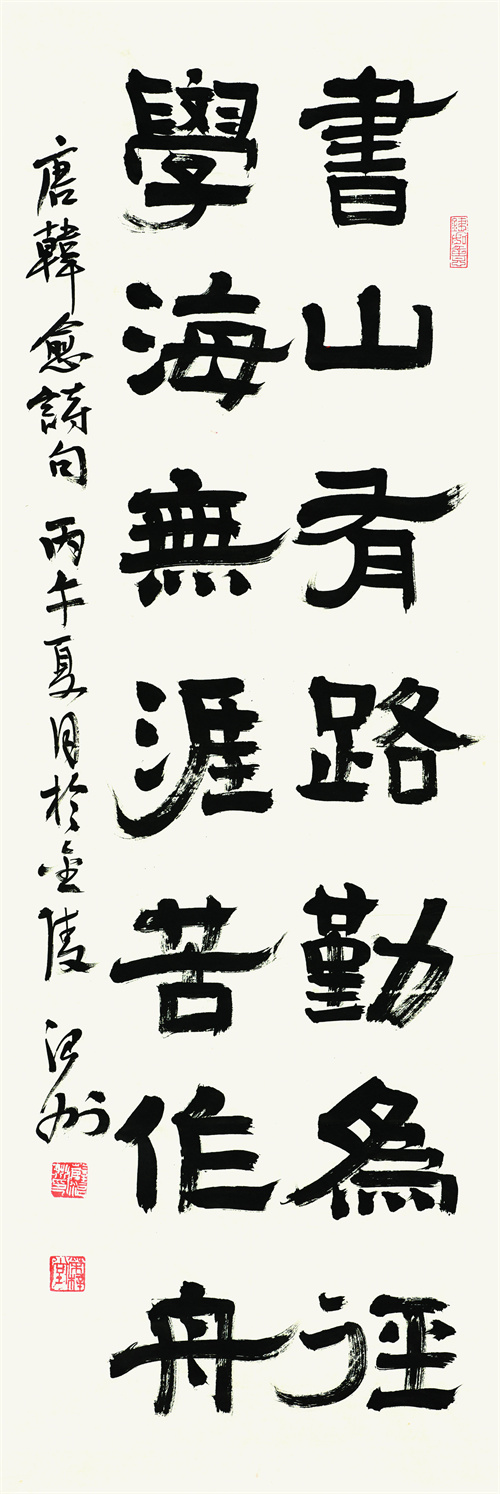 書山有路勤為徑
學海無涯苦作舟
唐韓愈詩句 丙午夏月於金陵